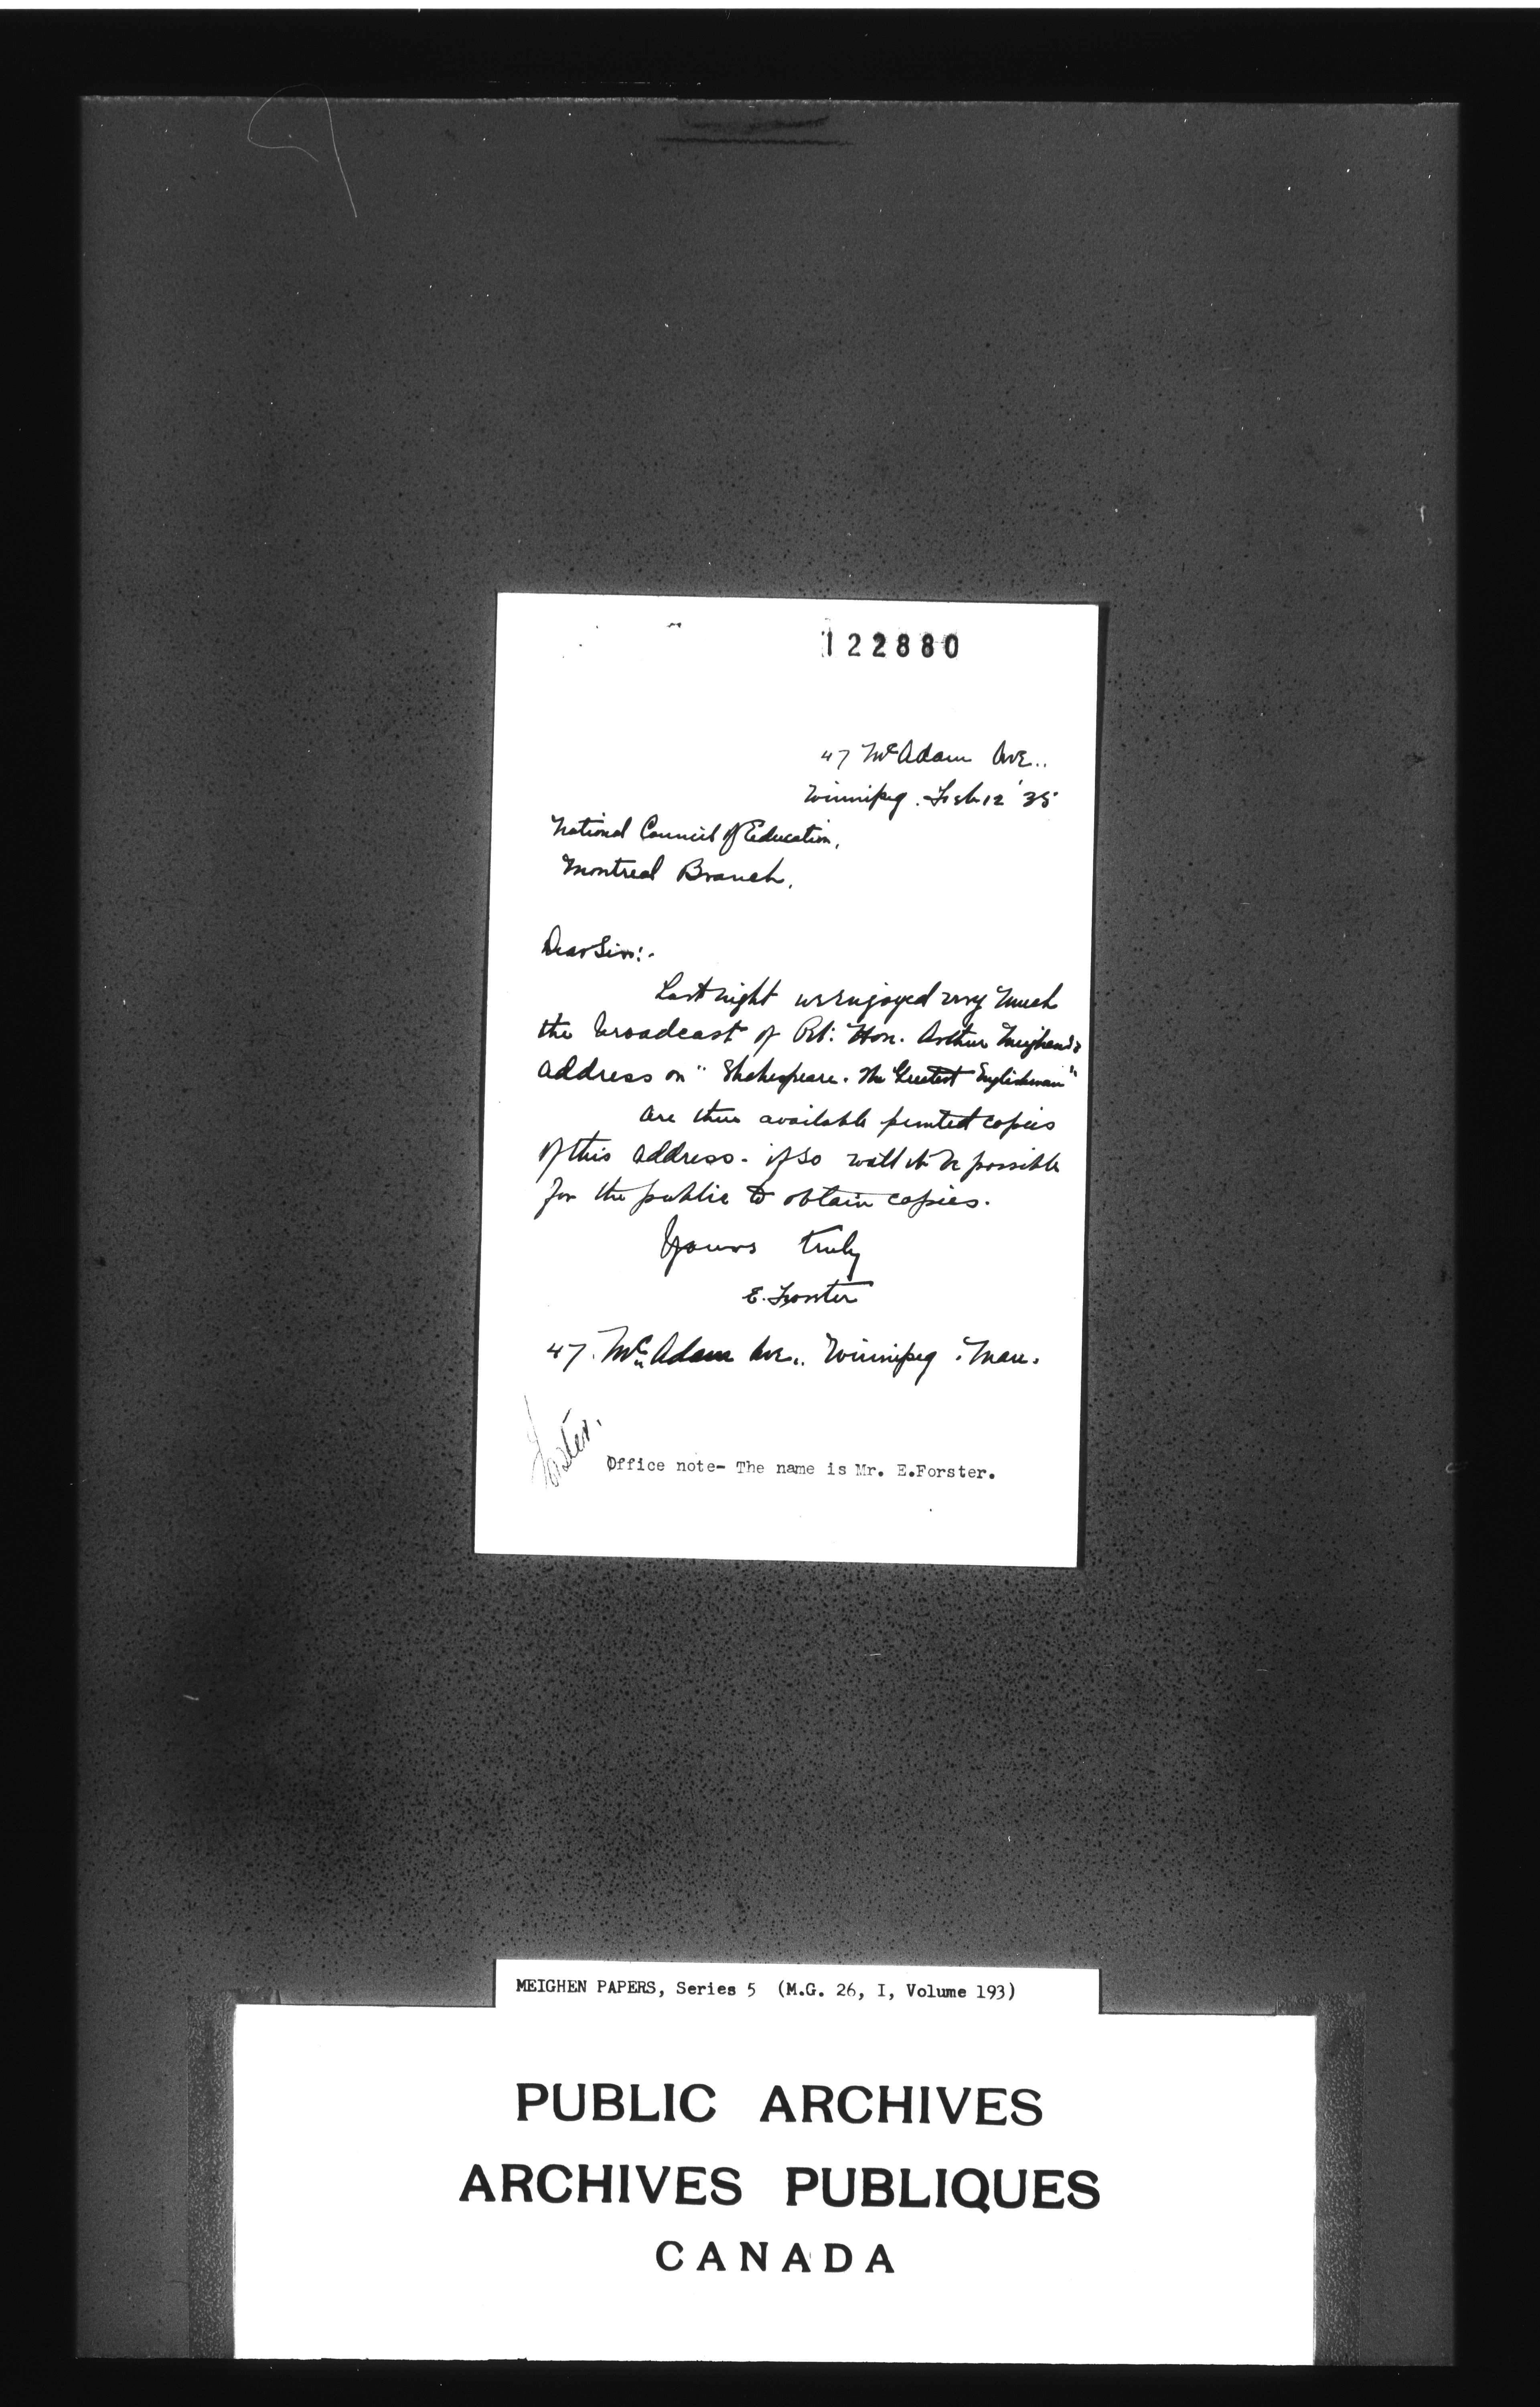 122880
47 McAdam Ave..
Winnipeg. Feb 12 '35
National Council of Education,
Montreal Branch.
Dear Sirs:-
Last night we enjoyed very much
the broadcast of Rt. Hon. Arthur Meighen's
address on "Shakespeare. The Greatest Englishman"
Are there available printed copies
of this address - if so will it be possible
for the public to obtain copies.
Yours truly
E. Forster
47. McAdam Ave., Winnipeg. Man.
Forster.
Office note- The name is Mr. E.Forster.
MEIGHEN PAPERS, Series 5 (M.G. 26, I, Volume 193)
PUBLIC ARCHIVES
ARCHIVES PUBLIQUES
CANADA